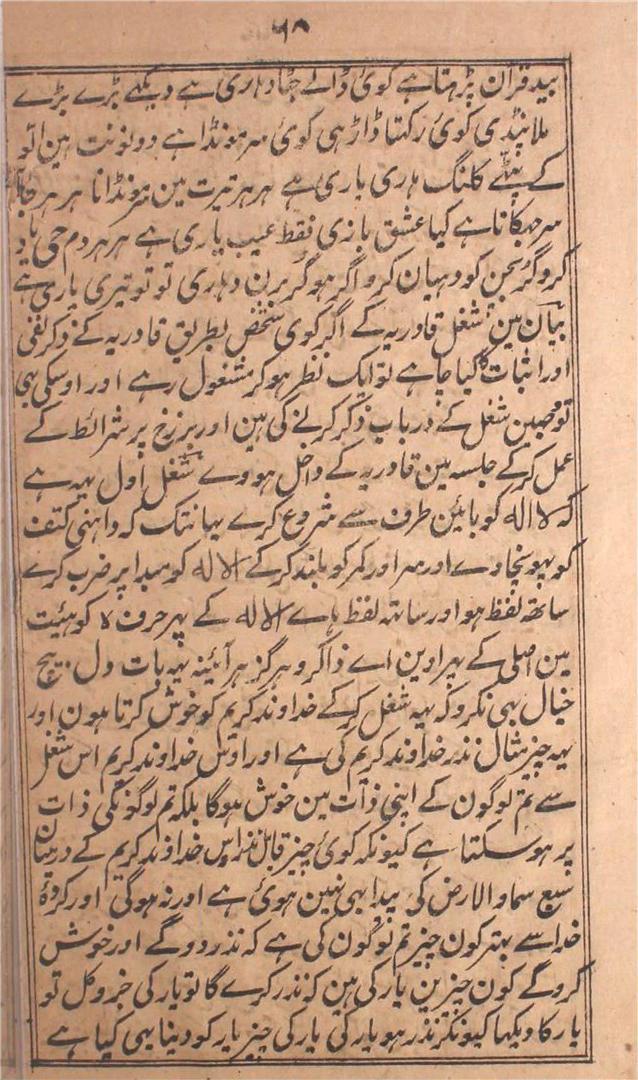 ۶۸
بید قران پڑہتا ہے کوئی ڈالے جٹا دہاری ہے دیکہے بڑے بڑے
ملا پنڈی کوئی رکہتا ڈاڑہی کوئی سر مونڈا ہے دونونت ہین اتو
کے پٹے کلنگ ہاری باری ہے ہر ہر تیرت مین سر مونڈانا ہر ہر
سر جہکانا ہے کیا عشق بازی فقط عیب یاری ہے ہر ہر دم جی یاد
کرو گر بچن کو دہیان کرو اگر ہو گر برن دہاری تو تو تیری یاری ہے
بیان مین شغل قادریہ کے اگر کوی شخص بطریق قادریہ کے ذکر نفی
اور اثبات کا کیا چاہے تو ایک نظر ہو کر مشغول رہے اور اوسکی بہی
توجہین شغل کے درباب ذکر کرنے کی ہین اور برزخ پر شرائط کے
عمل کر کے جلسہ مین قادریہ کے داخل ہووے شغل اول یہہ ہے
کہ لا الہ کو بائین طرف سے شروع کرے یہانتک کہ داہنی کتف
کو پہونچاوے اور سر اور کمر کو بلند کر کے الا لہ کو مبدا پر ضرب کرے
ساتہہ لفظ ہو اور ساتہہ لفظ ہاے الا لہ کے پہر حرف لا کو ہئیت
مین اصلی کے پہراوین اے ذاکرو ہرگز ہر آئینہ یہہ بات دل بیچ
خیال بہی نکرو کہ یہہ شغل کر کے خداوند کریم کو خوش کرتا ہون اور
یہہ چیز مثال نذر خداوند کریم کی ہے اور اوس خداوند کریم اس شغل
سے تم لوگون کے اپنی ذات مین خوش ہوگا بلکہ تم لوگونکی ذات
پر ہو سکتا ہے کیونکہ کوئی چیز قابل نذر اس خداوند کریم کے درمیان
سبع سما والارض کی پیدا بہی نہین ہوئی ہے اور نہ ہوگی اور کردہ
خدا سے بہتر کون چیز تم لوگون کی ہے کہ نذر دوگے اور خوش
کروگے کون چیزین یار کی ہین کہ نذر کرے گا تو یار کی جز و کل تو
یار کا دیکہا کیونکر نذر ہو یار کی یار کی چیز یار کو دینا یہی کیا ہے